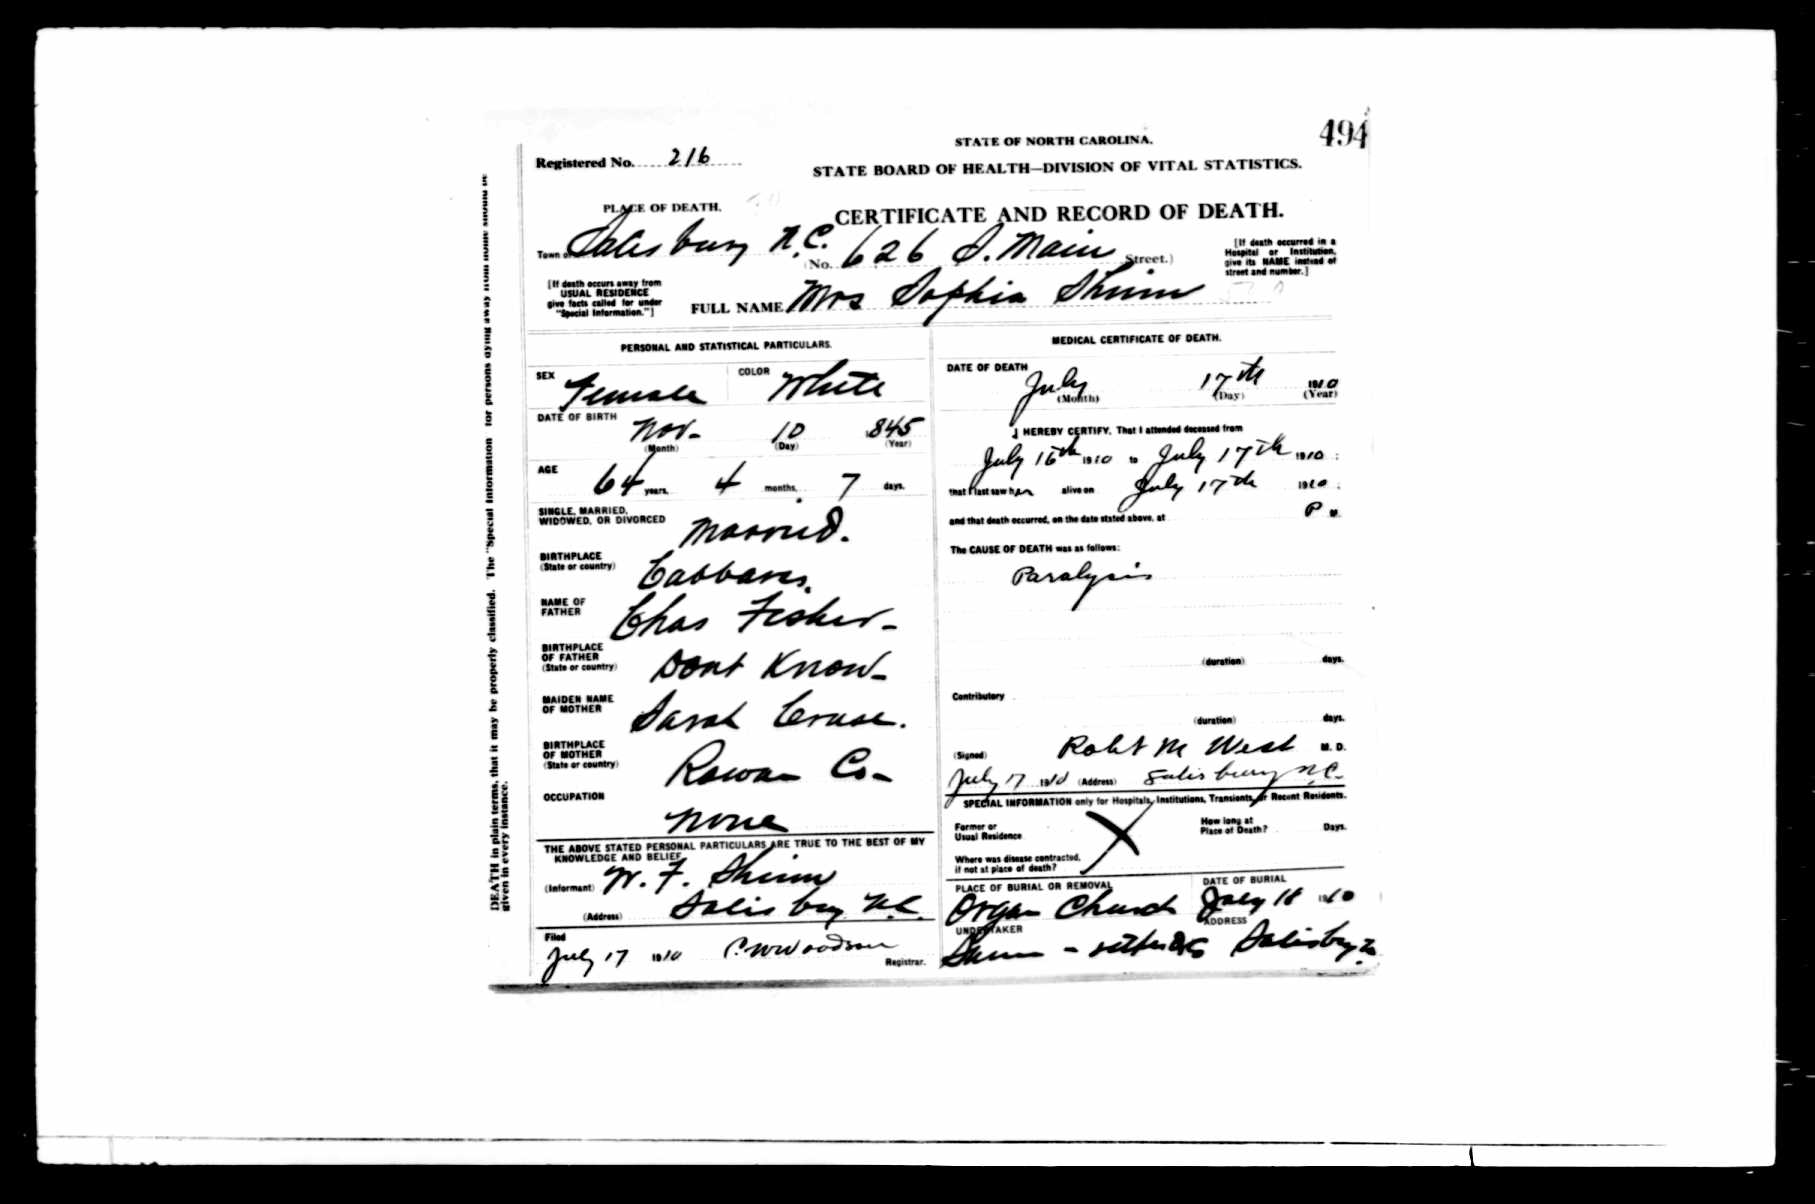 494
STATE OF NORTH CAROLINA.
Registered No. 216
STATE BOARD OF HEALTH—DIVISION OF VITAL STATISTICS.
PLACE OF DEATH.
CERTIFICATE AND RECORD OF DEATH.
Town of Salisbury N.C. (No. 626 S. Main Street.)
[If death occurred in a
Hospital or Institution,
give its NAME instead of
street and number.]
[If death occurs away from
USUAL RESIDENCE
give facts called for under
"Special Information."]
FULL NAME Mrs Sophia Shinn
PERSONAL AND STATISTICAL PARTICULARS.
SEX Female
COLOR White
DATE OF BIRTH
Nov. 10 1845
(Month) (Day) (Year)
AGE
64 years, 4 months, 7 days.
SINGLE, MARRIED,
WIDOWED, OR DIVORCED
Married.
BIRTHPLACE
(State or country)
Cabbarus.
NAME OF
FATHER
Chas Fisher-
BIRTHPLACE
OF FATHER
(State or country)
Dont Know-
MAIDEN NAME
OF MOTHER
Sarah Cruse.
BIRTHPLACE
OF MOTHER
(State or country)
Rowan Co-
OCCUPATION
None
THE ABOVE STATED PERSONAL PARTICULARS ARE TRUE TO THE BEST OF MY
KNOWLEDGE AND BELIEF
(Informant) W. F. Shinn
(Address) Salisbury N.C.
Filed
July 17 1910 C.W. Woodson
Registrar.
MEDICAL CERTIFICATE OF DEATH.
DATE OF DEATH
July 17th 1910
(Month) (Day) (Year)
I HEREBY CERTIFY, That I attended deceased from
July 16th 1910 to July 17th 1910 ;
that I last saw her alive on July 17th 1910 ;
and that death occurred, on the date stated above, at P M.
The CAUSE OF DEATH was as follows:
Paralysis
(duration) days.
Contributory
(duration) days.
(Signed) Robt M West M. D.
July 17 1910 (Address) Salisbury N.C.
SPECIAL INFORMATION only for Hospitals, Institutions, Transients, or Recent Residents.
Former or
Usual Residence
How long at
Place of Death? Days.
Where was disease contracted,
if not at place of death?
PLACE OF BURIAL OR REMOVAL
Organ Church
DATE OF BURIAL
July 18 1910
UNDERTAKER
ADDRESS
Salisbury
DEATH in plain terms, that it may be properly classified. The "Special Information for persons dying away from home should be
given in every instance.